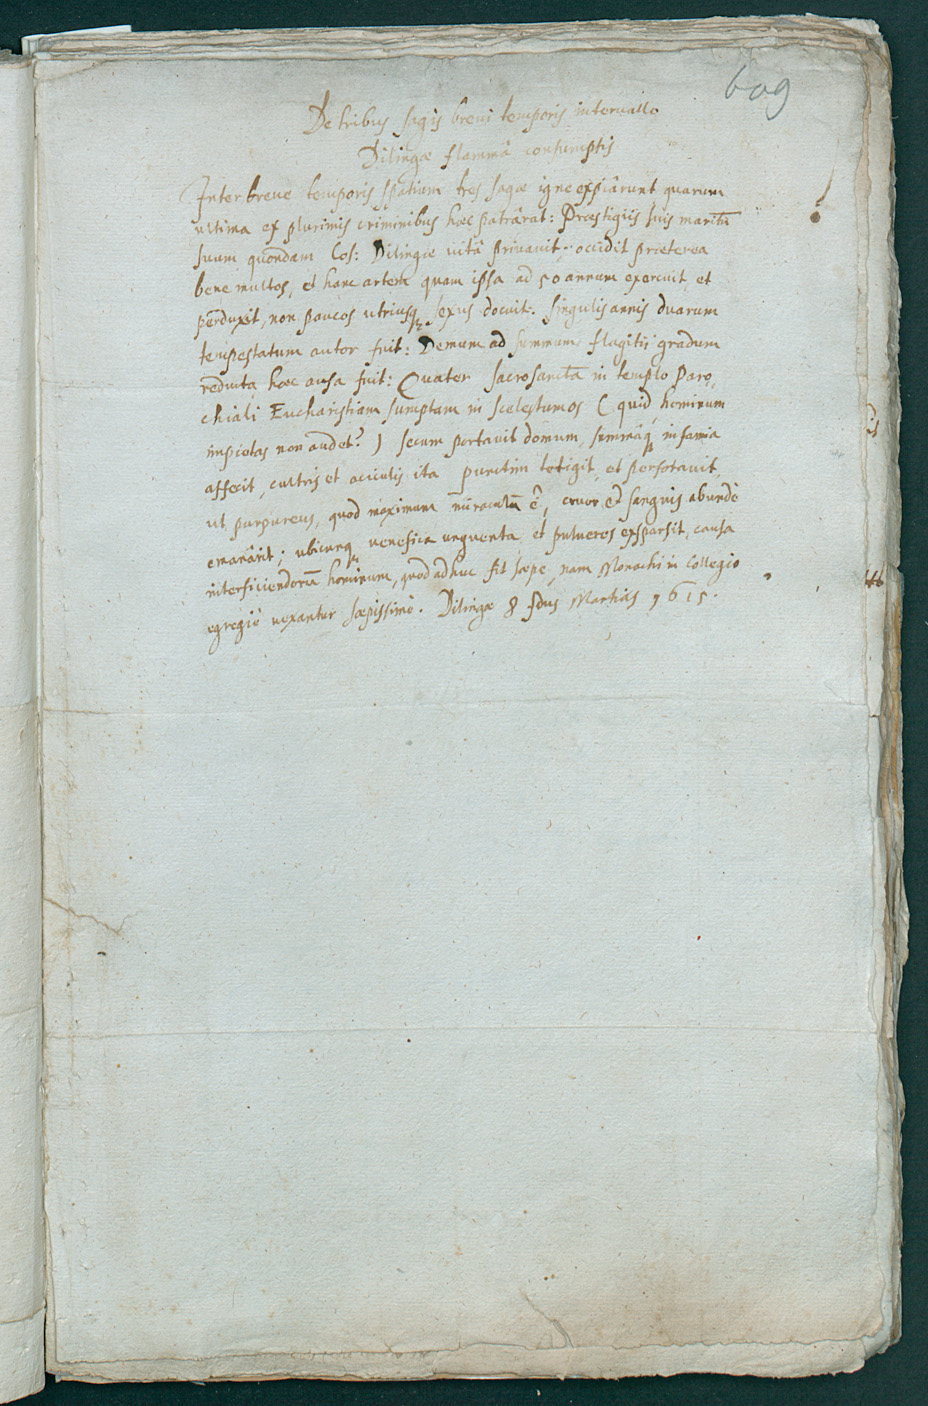 609
De tribus sagis breui temporis interuallo
Dilingæ flammâ consumptis
Inter breue temporis spatium tres sagæ igne expiârunt quarum
ultima ex plurimis criminibus hæc patrârat: Præstigiis suis maritū
suum quondam Cos: Dilingæ uitâ priuauit: occidit præterea
bene multos, et hanc artem quam ipsa ad 50 annum exercuit et
perduxit, non paucos utriusq sexus docuit. singulis annis duarum
tempestatum autor fuit: Demum ad summum flagitij gradum
reducta hæc ausa fuit: Quater sacrosanctā in templo Paro
chiali Eucharistiam sumptam in scelestum os ( quid hominum
impietas non audet? ) secum portauit domum, summâq infamia
affecit, cultris et aciculis ita punctim tetigit et perforauit,
ut purpureus, quod maximum miraculū ē, cruor et sanguis abundè
emanârit; ubicunq uenefica unguenta et pulueres exsparsit, causa
interficiendorū hominum, quod adhuc fit sæpe, nam Monachi in Collegio
egregiè uexantur sæpissimè. Dilingæ 8 Idus Martias 1615.